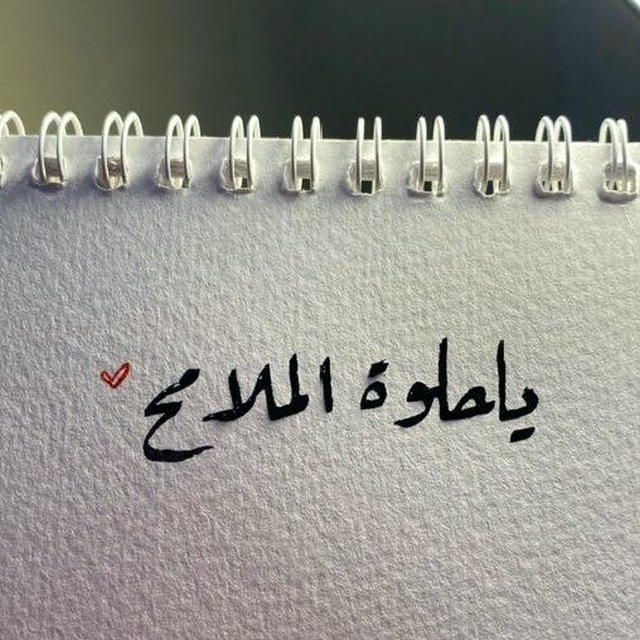 ياحلوة الملامح